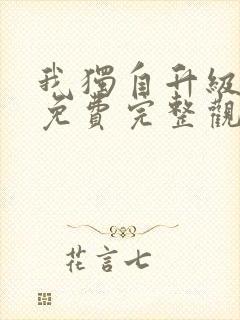 我獨自升級
免費完整觀
花言七